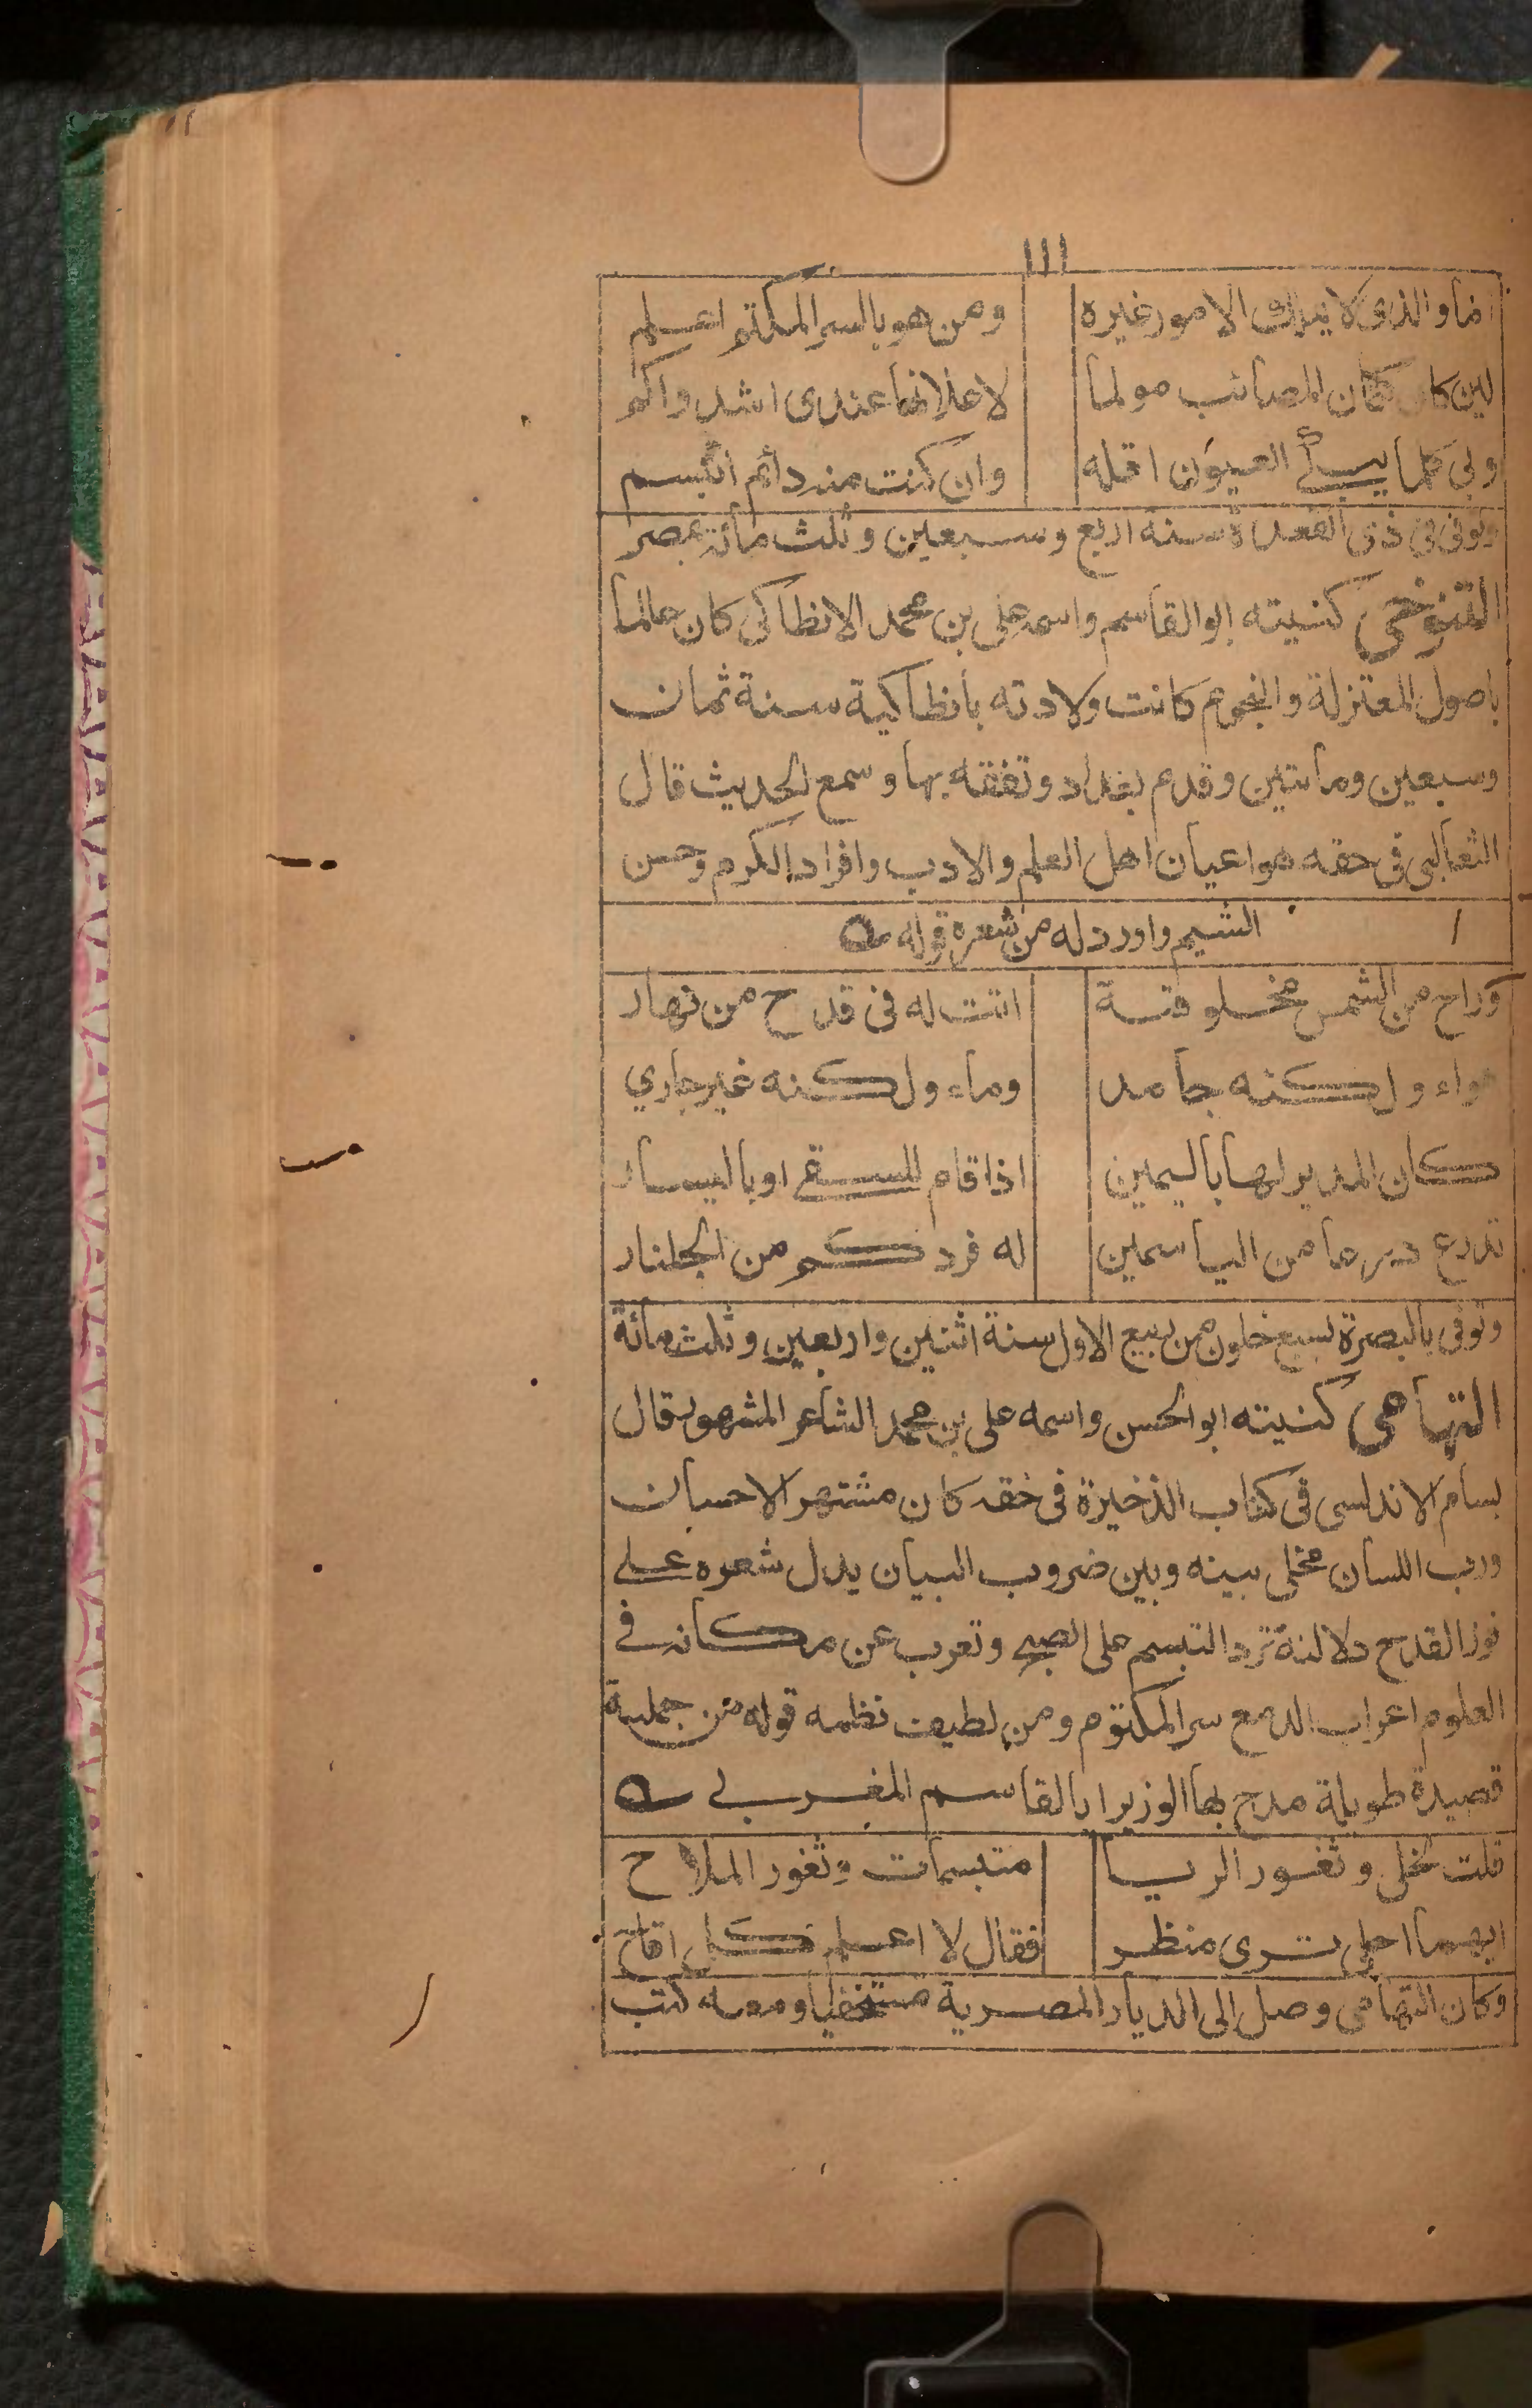 ١١١
اما والذى لا يملك الامور غيره ومن هو بالسر المكتم اعلم
لين كان كتمان المصائب مولما لاعلانها عندى اشد والم
وبى كلما يبكے العيون اقله وان كنت منه دائم اتبسم
وتوفى فى ذى القعدة سنة اربع وسبعين وثلث مائة بمصر
التنوخى كنيته ابو القاسم واسمه على بن محمد الانطاكى كان عالما
باصول المعتزلة والنجوم كانت ولادته بانطاكية سنة ثمان
وسبعين ومأتين وقدم بغداد وتفقه بها وسمع الحديث قال
الثعالبى فى حقه هو اعيان اهل العلم والادب وافراد الكرم وحسن
الشيم واورد له من شعره قوله
وراح من الشمس مخلوقة اتت له فى قدح من نهار
هواء ولكنه جامد وماء ولكنه غير جاري
كان المدير لها باليمين اذا قام للسقے او باليسار
تدرع درعا من الياسمين له فرد كم من الجلنار
وتوفى بالبصرة لسبع خلون من ربيع الاول سنة اثنتين واربعين وثلث مائة
التهامى كنيته ابو الحسن واسمه على بن محمد الشاعر المشهور قال
بسام الاندلسى فى كتاب الذخيرة فى حقه كان مشتهر الاحسان
ورب اللسان مخلى بينه وبين ضروب البيان يدل شعره علے
فوز القدح دلالة ترد التبسم على الصبح وتعرب عن مكانه فے
العلوم اعراب الدمع سر المكتوم ومن لطيف نظمه قوله من جملة
قصيدة طويلة مدح بها الوزير ابا القاسم المغربے
قلت لخلى وثغور الربا متبسمات وثغور الملاح
ايهما احلى ترى منظر فقال لا اعلم كل اقاح
وكان التهامى وصل الى الديار المصرية مستخفيا ومعه كتب